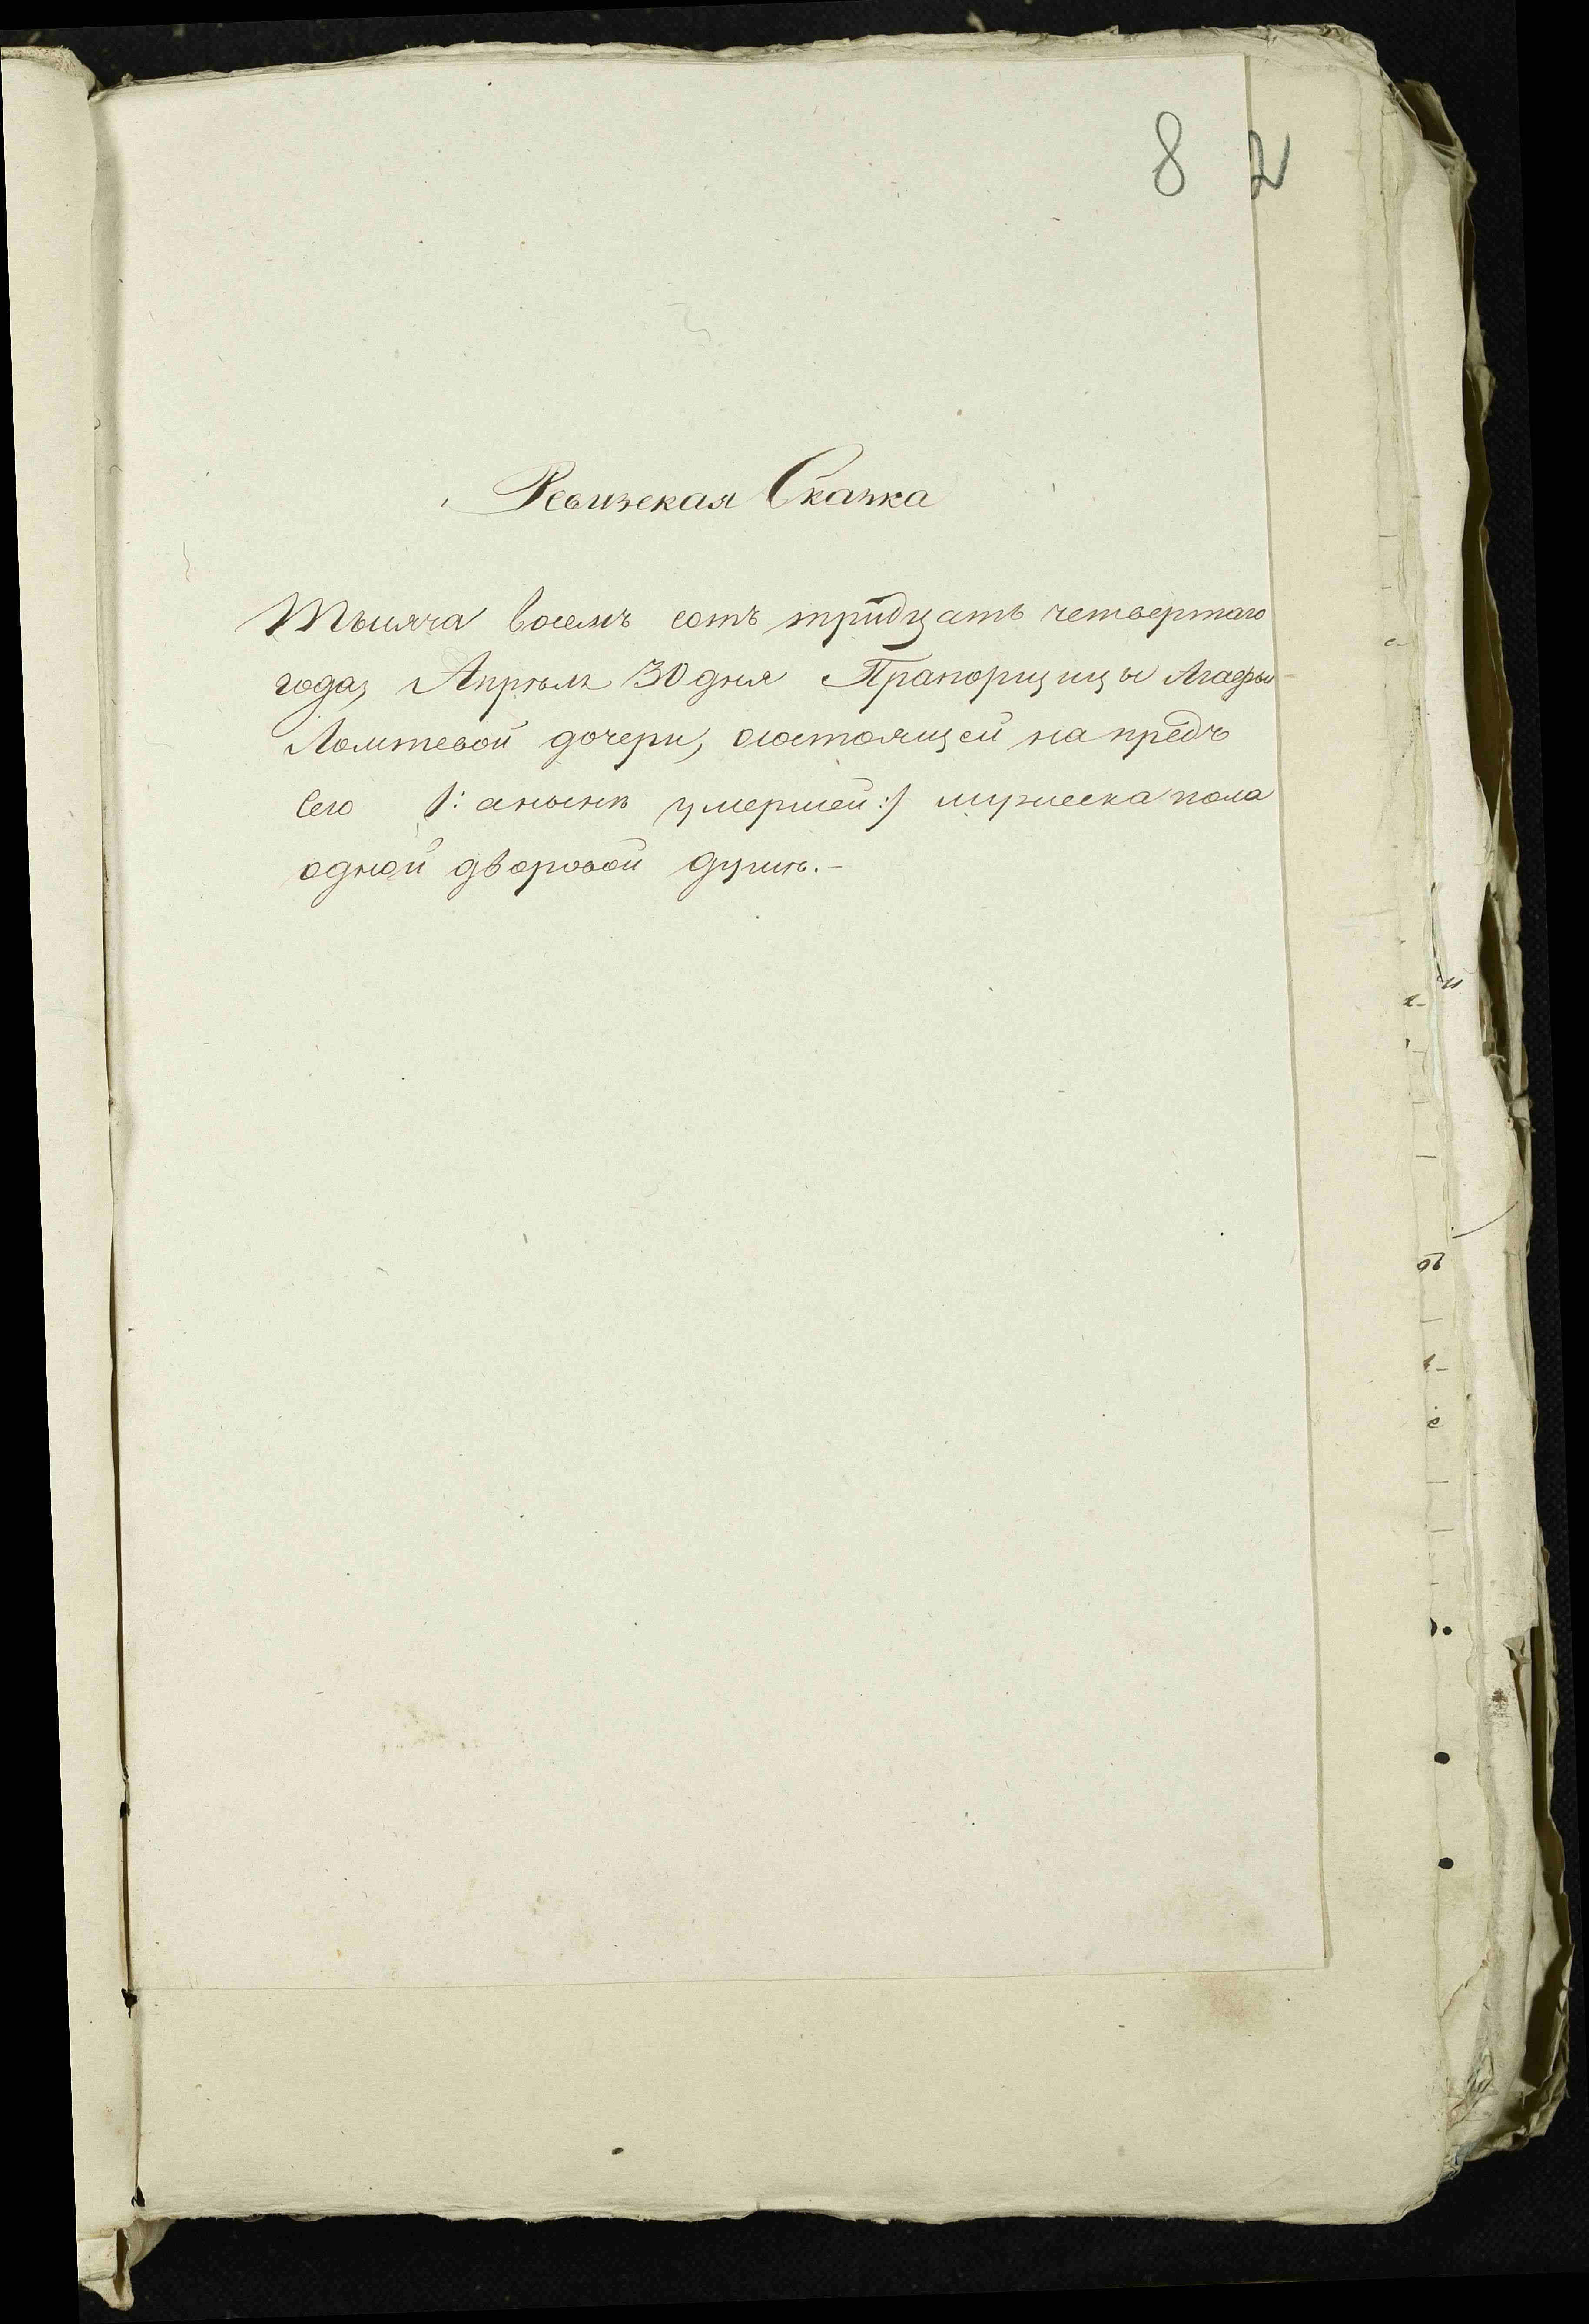 8 2
Ревизская Сказка
Тысяча восемь сотъ тридцать четвертаго
года, Апреля 30 дня Прапорщицы Агафьи
Ломтевой дочери, состоящей на предъ
сего /: а нынѣ умершей :/ мужеска пола
одной дворовой душѣ.-